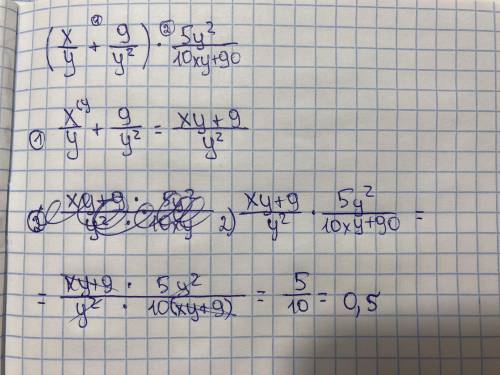 (x/y +① 9/y²) ·② 5y²/10xy+90
① x(y/y + 9/y² = xy+9/y²
2) xy+9/y² · 5y²/10xy+90 =
= xy+9 · 5y²/y² · 10(xy+9) = 5/10 = 0,5